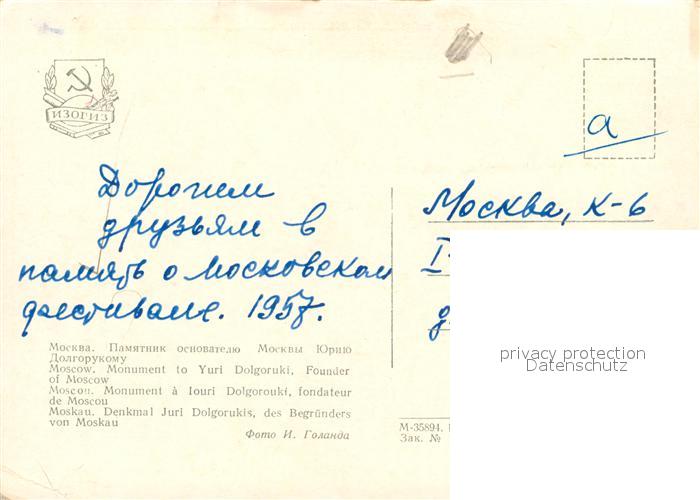 ИЗОГИЗ
а
Дорогим
друзьям в
память о Московском
фестивале. 1957.
Москва, К-6
I-
Москва. Памятник основателю Москвы Юрию
Долгорукому
Moscow. Monument to Yuri Dolgoruki, Founder
of Moscow
Moscou. Monument à Iouri Dolgorouki, fondateur
de Moscou
Moskau. Denkmal Juri Dolgorukis, des Begründers
von Moskau
Фото И. Голанда
М-35894.
Зак. №
privacy protection
Datenschutz